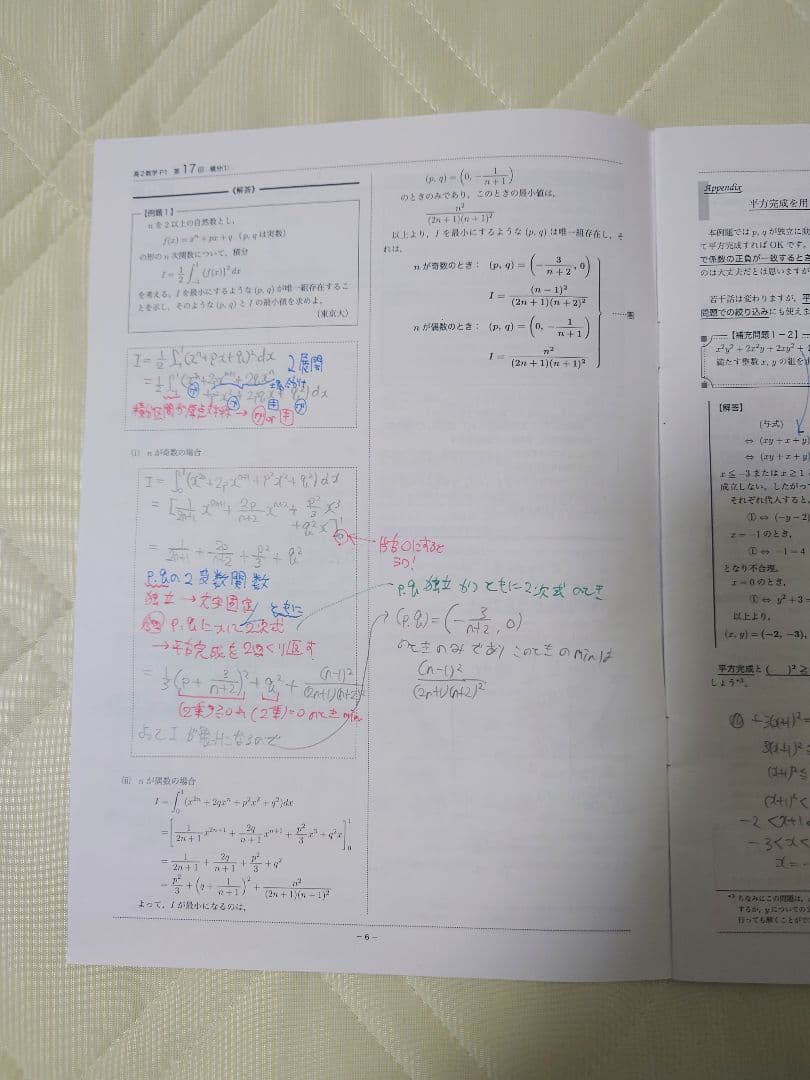 高2数学P1 第17回 積分(1)
《解答》
【例題1】
nを2以上の自然数とし,
f(x) = x^n + px + q (p, qは実数)
の形のn次関数について, 積分
I = 1/2 ∫_{-1}^{1} {f(x)}^2 dx
を考える. Iを最小にするような(p, q)が唯一組存在するこ
とを示し, そのような(p, q)とIの最小値を求めよ.
(東京大)
I = 1/2 ∫_{-1}^{1} (x^n + px + q)^2 dx
2展開
(i) nが奇数の場合
I = ∫_0^1 (x^{2n} + 2px^{n+1} + p^2x^2 + q^2) dx
= [1/(2n+1) x^{2n+1} + 2p/(n+2) x^{n+2} + p^2/3 x^3
+ q^2 x]_0^1
= 1/(2n+1) + 2p/(n+2) + p^2/3 + q^2
p, qの2変数関数
独立 → 文字固定
p, qについて2次式
ともに
→ 平方完成を2回くり返す
= 1/3 (p + 3/(n+2))^2 + q^2 + (n-1)^2/((2n+1)(n+2)^2)
(2乗)≧0より (2乗)=0のときmin
よって I が最小になるので
(ii) nが偶数の場合
I = ∫_0^1 (x^{2n} + 2qx^n + p^2x^2 + q^2)dx
= [1/(2n+1) x^{2n+1} + 2q/(n+1) x^{n+1} + p^2/3 x^3 + q^2x]_0^1
= 1/(2n+1) + 2q/(n+1) + p^2/3 + q^2
= p^2/3 + (q + 1/(n+1))^2 + n^2/((2n+1)(n-1)^2)
よって, Iが最小になるのは,
(p, q) = (0, -1/(n+1))
のときのみであり, このときの最小値は,
n^2/((2n+1)(n+1)^2)
以上より, Iを最小にするような(p, q)は唯一組存在し, そ
れは,
nが奇数のとき: (p, q) = (-3/(n+2), 0)
I = (n-1)^2/((2n+1)(n+2)^2)
nが偶数のとき: (p, q) = (0, -1/(n+1))
I = n^2/((2n+1)(n+1)^2)
……答
p, q 独立 かつ ともに2次式 のとき
(p, q) = (-3/(n+2), 0)
のときのみであり このときのminは
(n-1)^2/((2n+1)(n+2)^2)
- 6 -
Appendix
平方完成を用
本例題ではp, qが独立に
て平方完成すればOKです.
で係数の正負が一致するとき
のは大丈夫だとは思いますが
若干話は変わりますが, 平
問題での絞り込みにも使えま
【補充問題1-2】
x^2y^2 + 2x^2y + 2xy^2 +
満たす整数x, yの組を
【解答】
(与式)
⇔ (xy + x + y)
⇔ (xy + x + y)
x ≦ -3またはx ≧ 1
成立しない. したがって
それぞれ代入すると,
① ⇔ (-y - 2)
x = -1のとき,
① ⇔ -1 = 4
となり不合理.
x = 0のとき,
① ⇔ y^2 + 3 =
以上より,
(x, y) = (-2, -3),
平方完成と( )^2 ≧
しょう*3.
+3(x+1)^2 =
3(x+1)^2 ≦
(x+1)^2 ≦
(x+1)^2 <
-2 < x+1 <
-3 < x <
x = -
*3 ちなみにこの問題は,
するか, yについての
行っても解くことがで